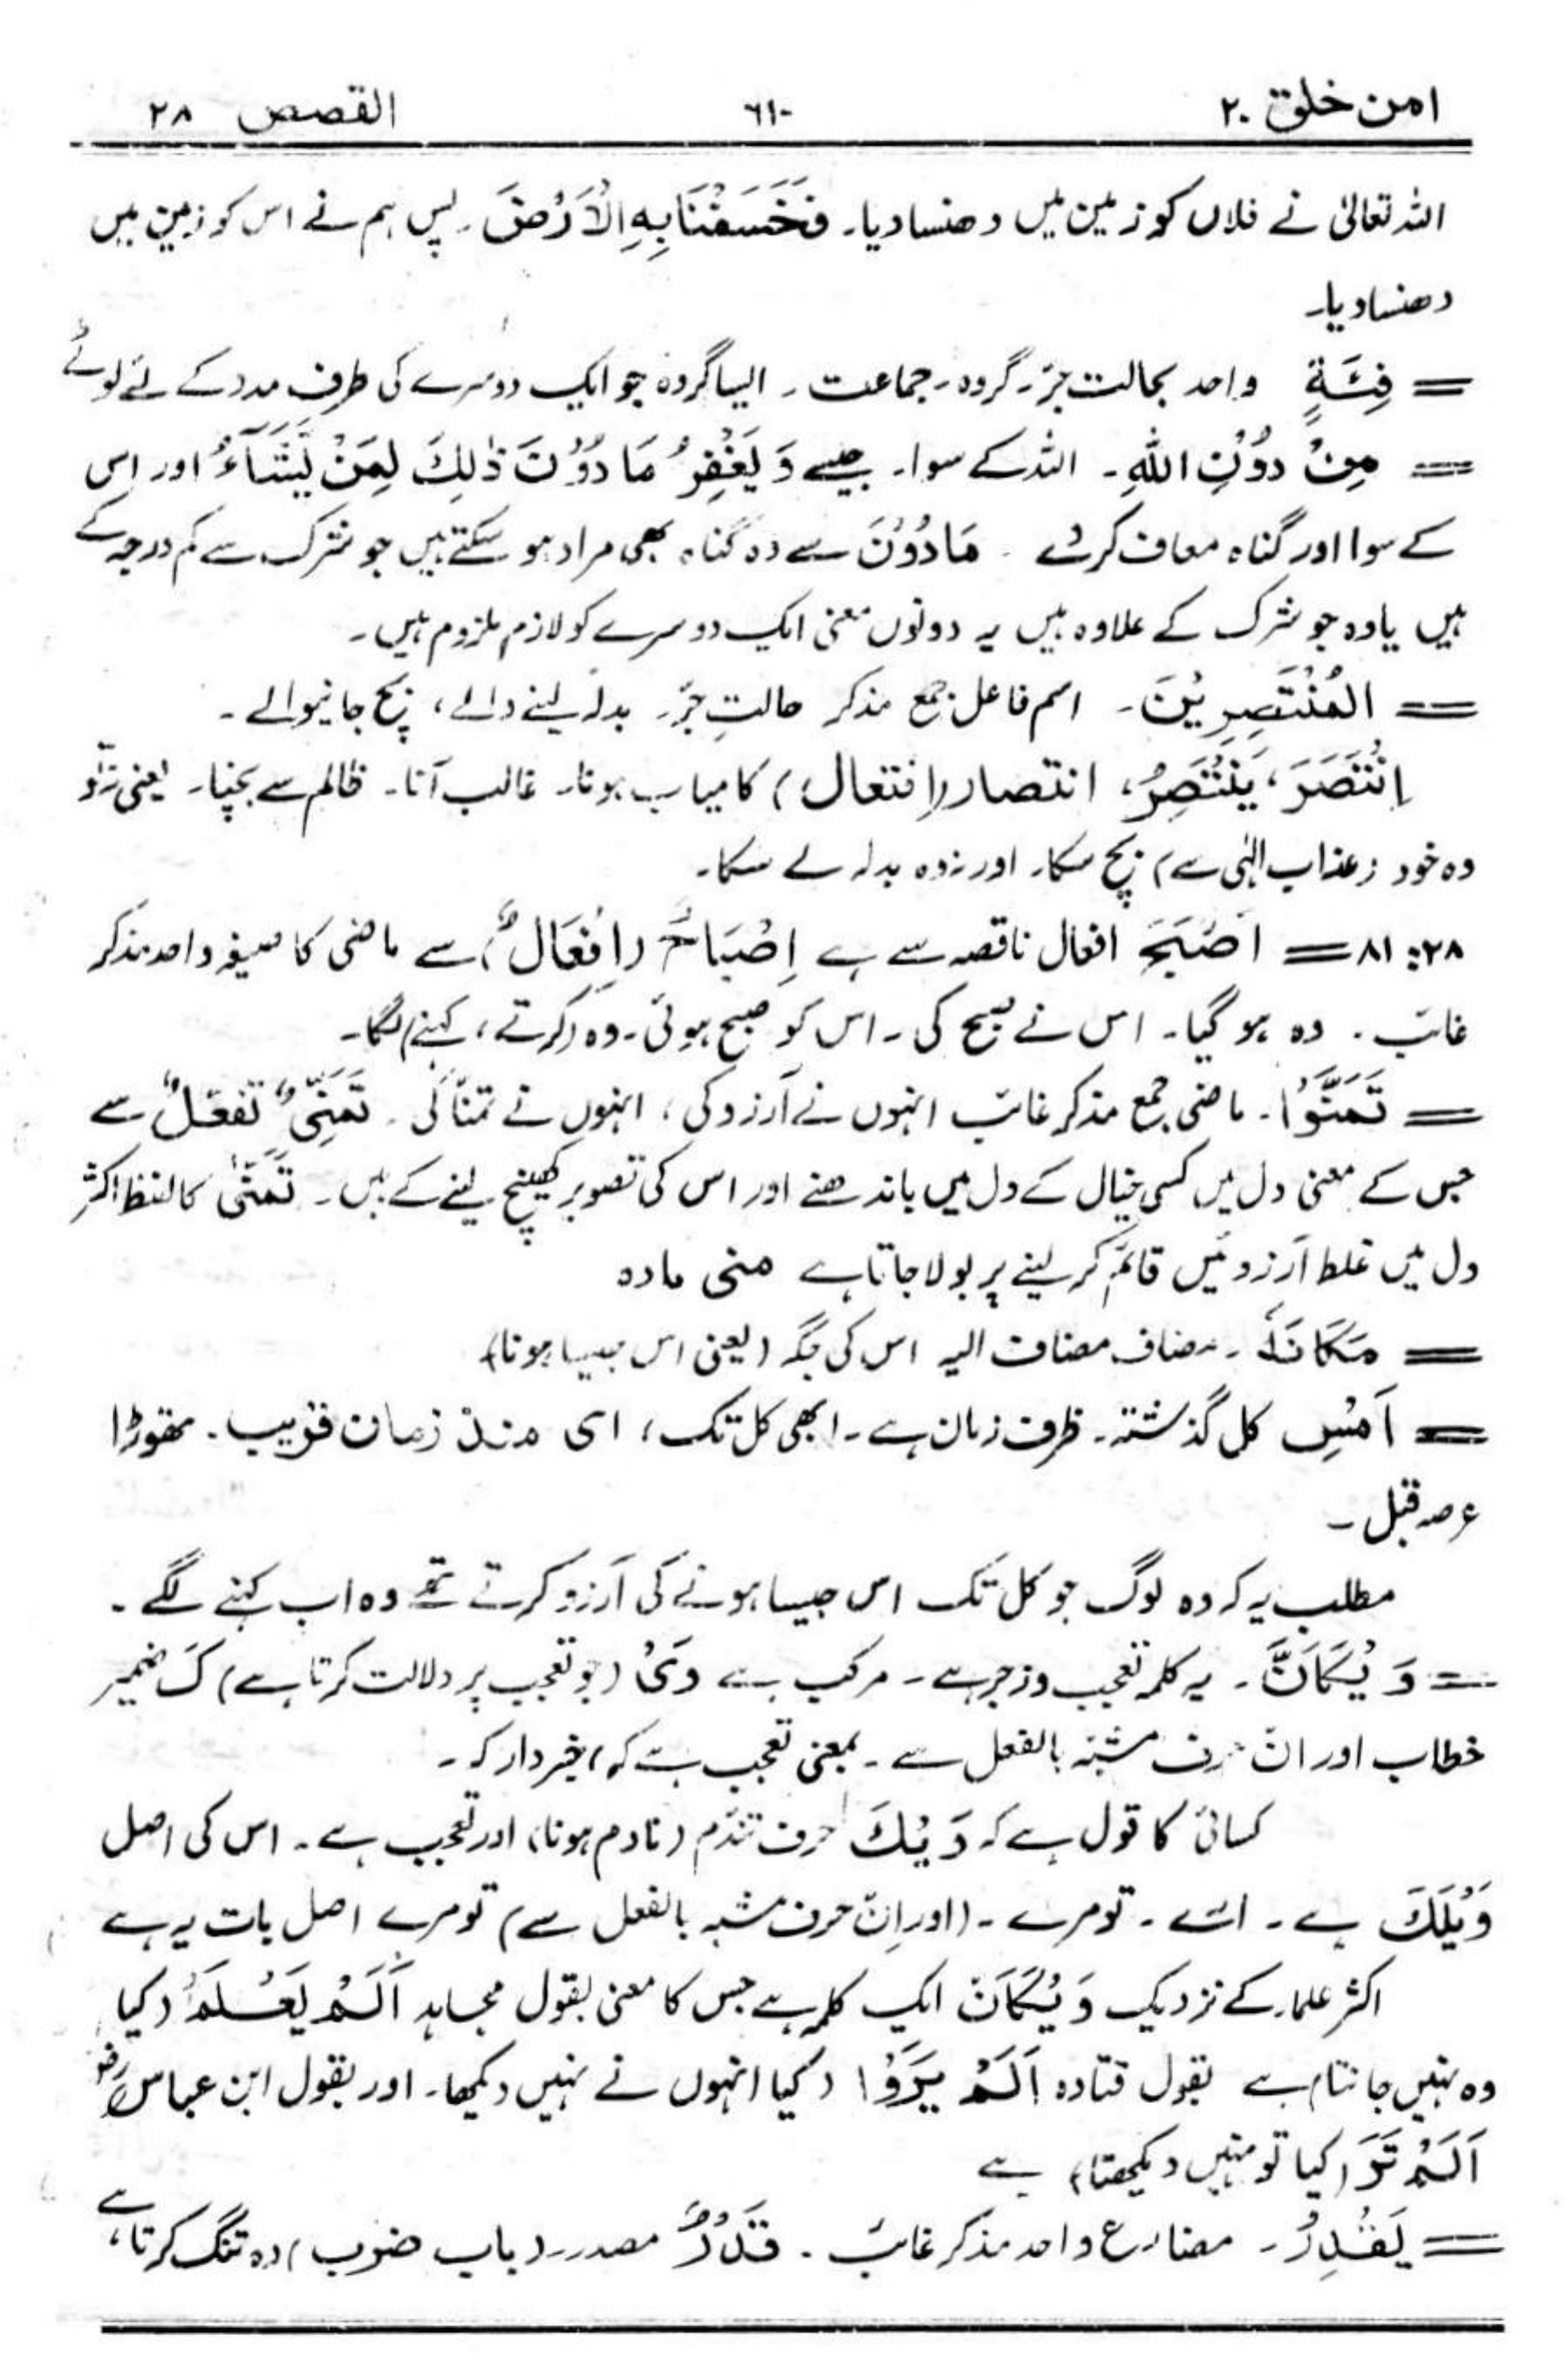 امن خلق ۲۰ ۶۱۰ القصص ۲۸
اللہ تعالیٰ نے فلاں کو زمین میں دھنسا دیا۔ فَخَسَفْنَا بِهِ الْاَرْضَ۔ پس ہم نے اس کو زمین میں
دھنسا دیا۔
= فِئَةٍ واحد بحالت جرّ۔ گروہ۔ جماعت۔ ایسا گروہ جو ایک دوسرے کی طرف مدد کے لئے لوٹے
= مِنْ دُوْنِ اللّٰهِ۔ اللہ کے سوا۔ جیسے وَ یَغْفِرُ مَا دُوْنَ ذٰلِكَ لِمَنْ یَّشَآءُ اور اس
کے سوا اور گناہ معاف کر دے۔ مَا دُوْنَ سے وہ گناہ بھی مراد ہو سکتے ہیں جو شرک سے کم درجہ کے
ہیں یا وہ جو شرک کے علاوہ ہیں یہ دونوں معنی ایک دوسرے کو لازم ملزوم ہیں۔
= الْمُنْتَصِرِیْنَ۔ اسم فاعل جمع مذکر حالتِ جرّ۔ بدلہ لینے والے، بچ جانیوالے۔
اِنْتَصَرَ، یَنْتَصِرُ، انتصار (افتعال) کامیاب ہونا۔ غالب آنا۔ ظالم سے بچنا۔ یعنی نہ تو
وہ خود (عذاب الٰہی سے) بچ سکا۔ اور نہ وہ بدلہ لے سکا۔
۲۸: ۸۱ = اَصْبَحَ افعال ناقصہ سے ہے اِصْبَاحٌ (اِفْعَالٌ) سے ماضی کا صیغہ واحد مذکر
غائب۔ وہ ہو گیا۔ اس نے صبح کی۔ اس کو صبح ہوئی۔ وہ (کرتے، کہنے) لگا۔
= تَمَنَّوْا۔ ماضی جمع مذکر غائب انہوں نے آرزو کی، انہوں نے تمنا کی۔ تَمَنِّیٌ تَفَعُّلٌ سے
جس کے معنی دل میں کسی خیال کے دل میں باندھنے اور اس کی تصویر کھینچ لینے کے ہیں۔ تَمَنّٰی کا لفظ اکثر
دل میں غلط آرزوئیں قائم کر لینے پر بولا جاتا ہے منی مادہ
= مَكَانَهٗ۔ مضاف مضاف الیہ اس کی جگہ (یعنی اس جیسا ہونا)
= اَمْسِ کل گذشتہ۔ ظرف زمان ہے۔ ابھی کل تک، ای منذ زمان قریب۔ تھوڑا
عرصہ قبل۔
مطلب یہ کہ وہ لوگ جو کل تک اس جیسا ہونے کی آرزو کرتے تھے وہ اب کہنے لگے۔
= وَیْكَاَنَّ۔ یہ کلمہ تعجب و زجر ہے۔ مرکب ہے وَیْ (جو تعجب پر دلالت کرتا ہے) كَ ضمیر
خطاب اور انّ حرف مشبہ بالفعل سے۔ بمعنی تعجب ہے کہ، خبردار کہ۔
کسائی کا قول ہے کہ وَیْكَ حرف تندّم (نادم ہونا) اور تعجب ہے۔ اس کی اصل
وَیْلَكَ ہے۔ ائے۔ تو مرے۔ (اور اِنّ حرف مشبہ بالفعل سے) تو مرے اصل بات یہ ہے
اکثر علماء کے نزدیک وَیْكَاَنَّ ایک کلمہ ہے جس کا معنی بقول مجاہد اَلَمْ یَعْلَمْ (کیا
وہ نہیں جانتا) ہے بقول قتادہ اَلَمْ یَرَوْا (کیا انہوں نے نہیں دیکھا۔ اور بقول ابن عباسؓ
اَلَمْ تَرَ (کیا تو نہیں دیکھتا) ہے
= یَقْدِرُ۔ مضارع واحد مذکر غائب۔ قَدْرٌ مصدر۔ (باب ضرب) وہ تنگ کرتا ہے،